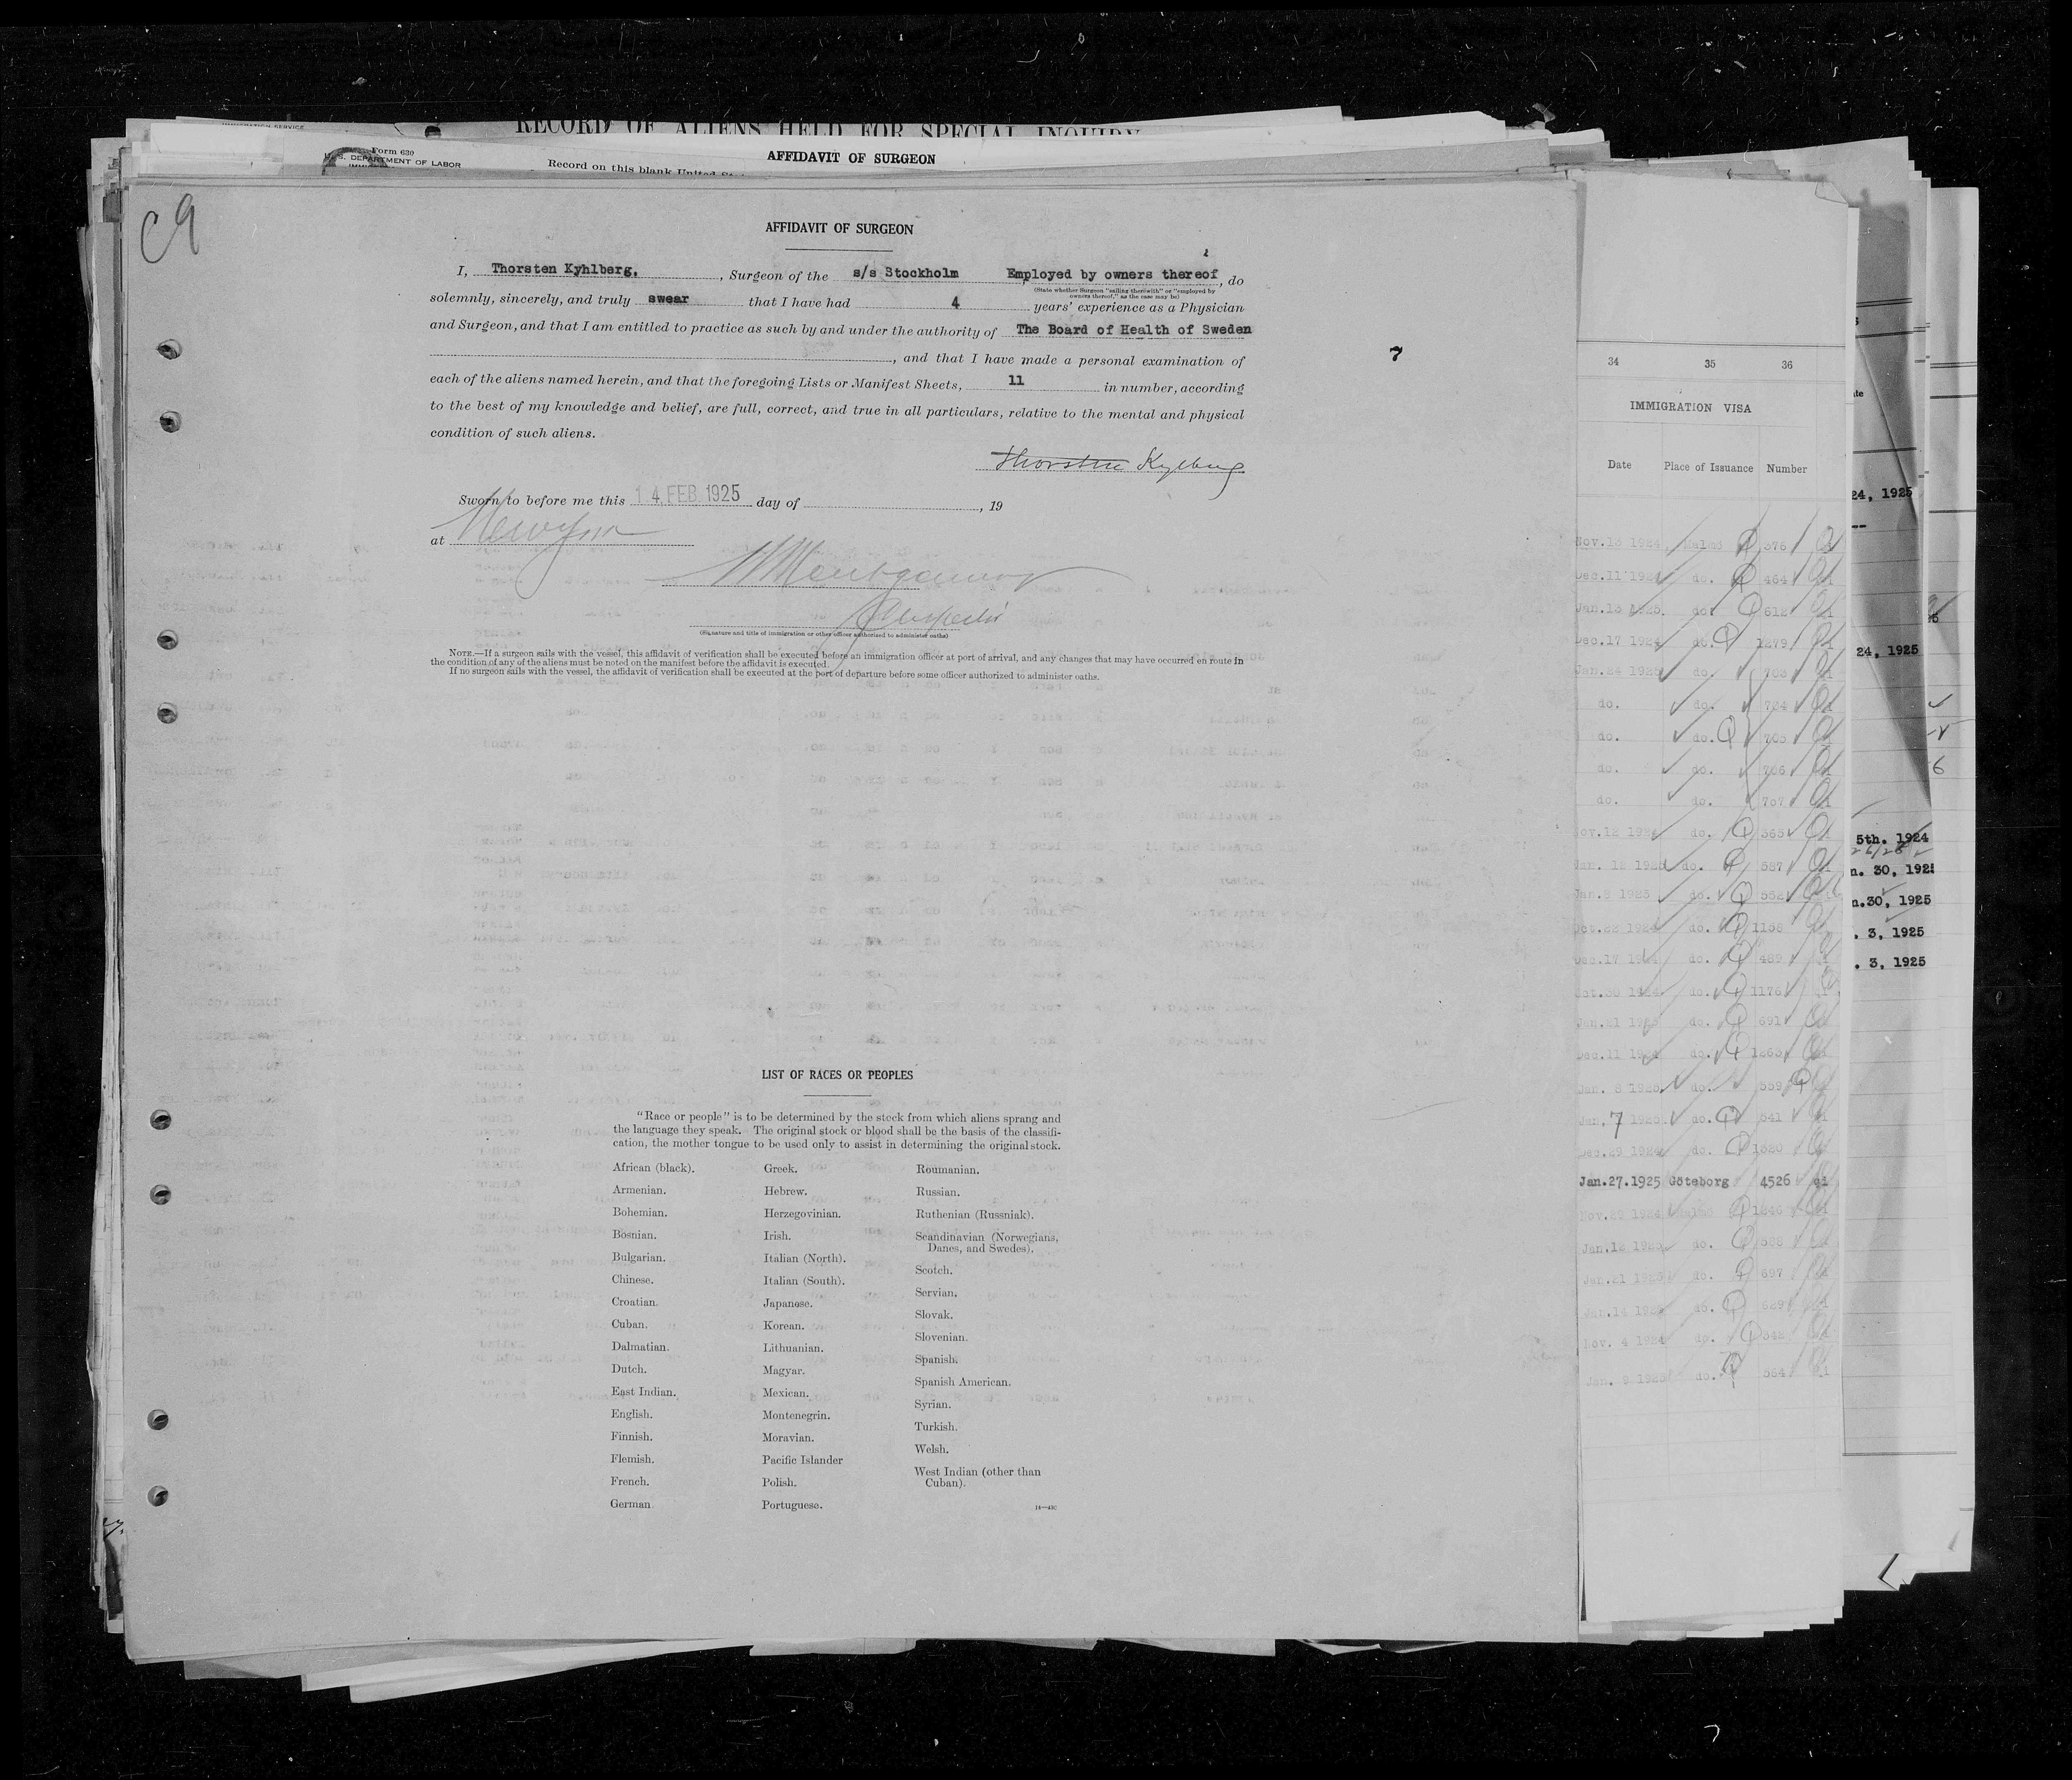 RECORD OF ALIENS HELD FOR SPECIAL INQUIRY
Form 630
U. S. DEPARTMENT OF LABOR
AFFIDAVIT OF SURGEON
Record on this blank United
C9
AFFIDAVIT OF SURGEON
I, Thorsten Kyhlberg, , Surgeon of the s/s Stockholm Employed by owners thereof , do
(State whether Surgeon "sailing therewith" or "employed by
owners thereof," as the case may be)
solemnly, sincerely, and truly swear that I have had 4 years' experience as a Physician
and Surgeon, and that I am entitled to practice as such by and under the authority of The Board of Health of Sweden
, and that I have made a personal examination of
7
each of the aliens named herein, and that the foregoing Lists or Manifest Sheets, 11 in number, according
to the best of my knowledge and belief, are full, correct, and true in all particulars, relative to the mental and physical
condition of such aliens.
Thorsten Kyhlberg
Sworn to before me this 14 FEB 1925 day of , 19
at New York
Montgomery
Inspector
(Signature and title of immigration or other officer authorized to administer oaths)
NOTE.—If a surgeon sails with the vessel, this affidavit of verification shall be executed before an immigration officer at port of arrival, and any changes that may have occurred en route in
the condition of any of the aliens must be noted on the manifest before the affidavit is executed.
If no surgeon sails with the vessel, the affidavit of verification shall be executed at the port of departure before some officer authorized to administer oaths.
LIST OF RACES OR PEOPLES
"Race or people" is to be determined by the stock from which aliens sprang and
the language they speak. The original stock or blood shall be the basis of the classifi-
cation, the mother tongue to be used only to assist in determining the original stock.
African (black).
Armenian.
Bohemian.
Bosnian.
Bulgarian.
Chinese.
Croatian.
Cuban.
Dalmatian.
Dutch.
East Indian.
English.
Finnish.
Flemish.
French.
German
Greek.
Hebrew.
Herzegovinian.
Irish.
Italian (North).
Italian (South).
Japanese.
Korean.
Lithuanian.
Magyar.
Mexican.
Montenegrin.
Moravian.
Pacific Islander
Polish.
Portuguese.
Roumanian.
Russian.
Ruthenian (Russniak).
Scandinavian (Norwegians,
Danes, and Swedes).
Scotch.
Servian.
Slovak.
Slovenian.
Spanish.
Spanish American.
Syrian.
Turkish.
Welsh.
West Indian (other than
Cuban).
34 35 36
IMMIGRATION VISA
Date Place of Issuance Number
Nov.13 1924 Malmö 376
Dec.11 1924 do. 464
Jan.13 1925. do. 612
Dec.17 1924 do. 1279
Jan.24 1925 do. 703
do. do. 704
do. do. 705
do. do. 706
do. do. 707
Nov.12 1924 do. 365
Jan. 12 1925 do. 587
Jan.8 1925 do. 552
Oct.22 1924 do. 1158
Dec.17 1924 do. 489
Oct.30 1924 do. 1176
Jan.21 1925 do. 691
Dec.11 1924 do. 1263
Jan. 8 1925 do. 559
Jan. 7 1925 do. 541
Dec.29 1924 do. 1320
Jan.27.1925 Göteborg 4526
Nov.29 1924 Malmö 1246
Jan.12 1925 do. 588
Jan.21 1925 do. 697
Jan.14 1925 do. 629
Nov. 4 1924 do. 348
Jan. 9 1925 do. 564
24, 1925
24, 1925
6
5th. 1924
n. 30, 1925
n.30, 1925
. 3, 1925
. 3, 1925